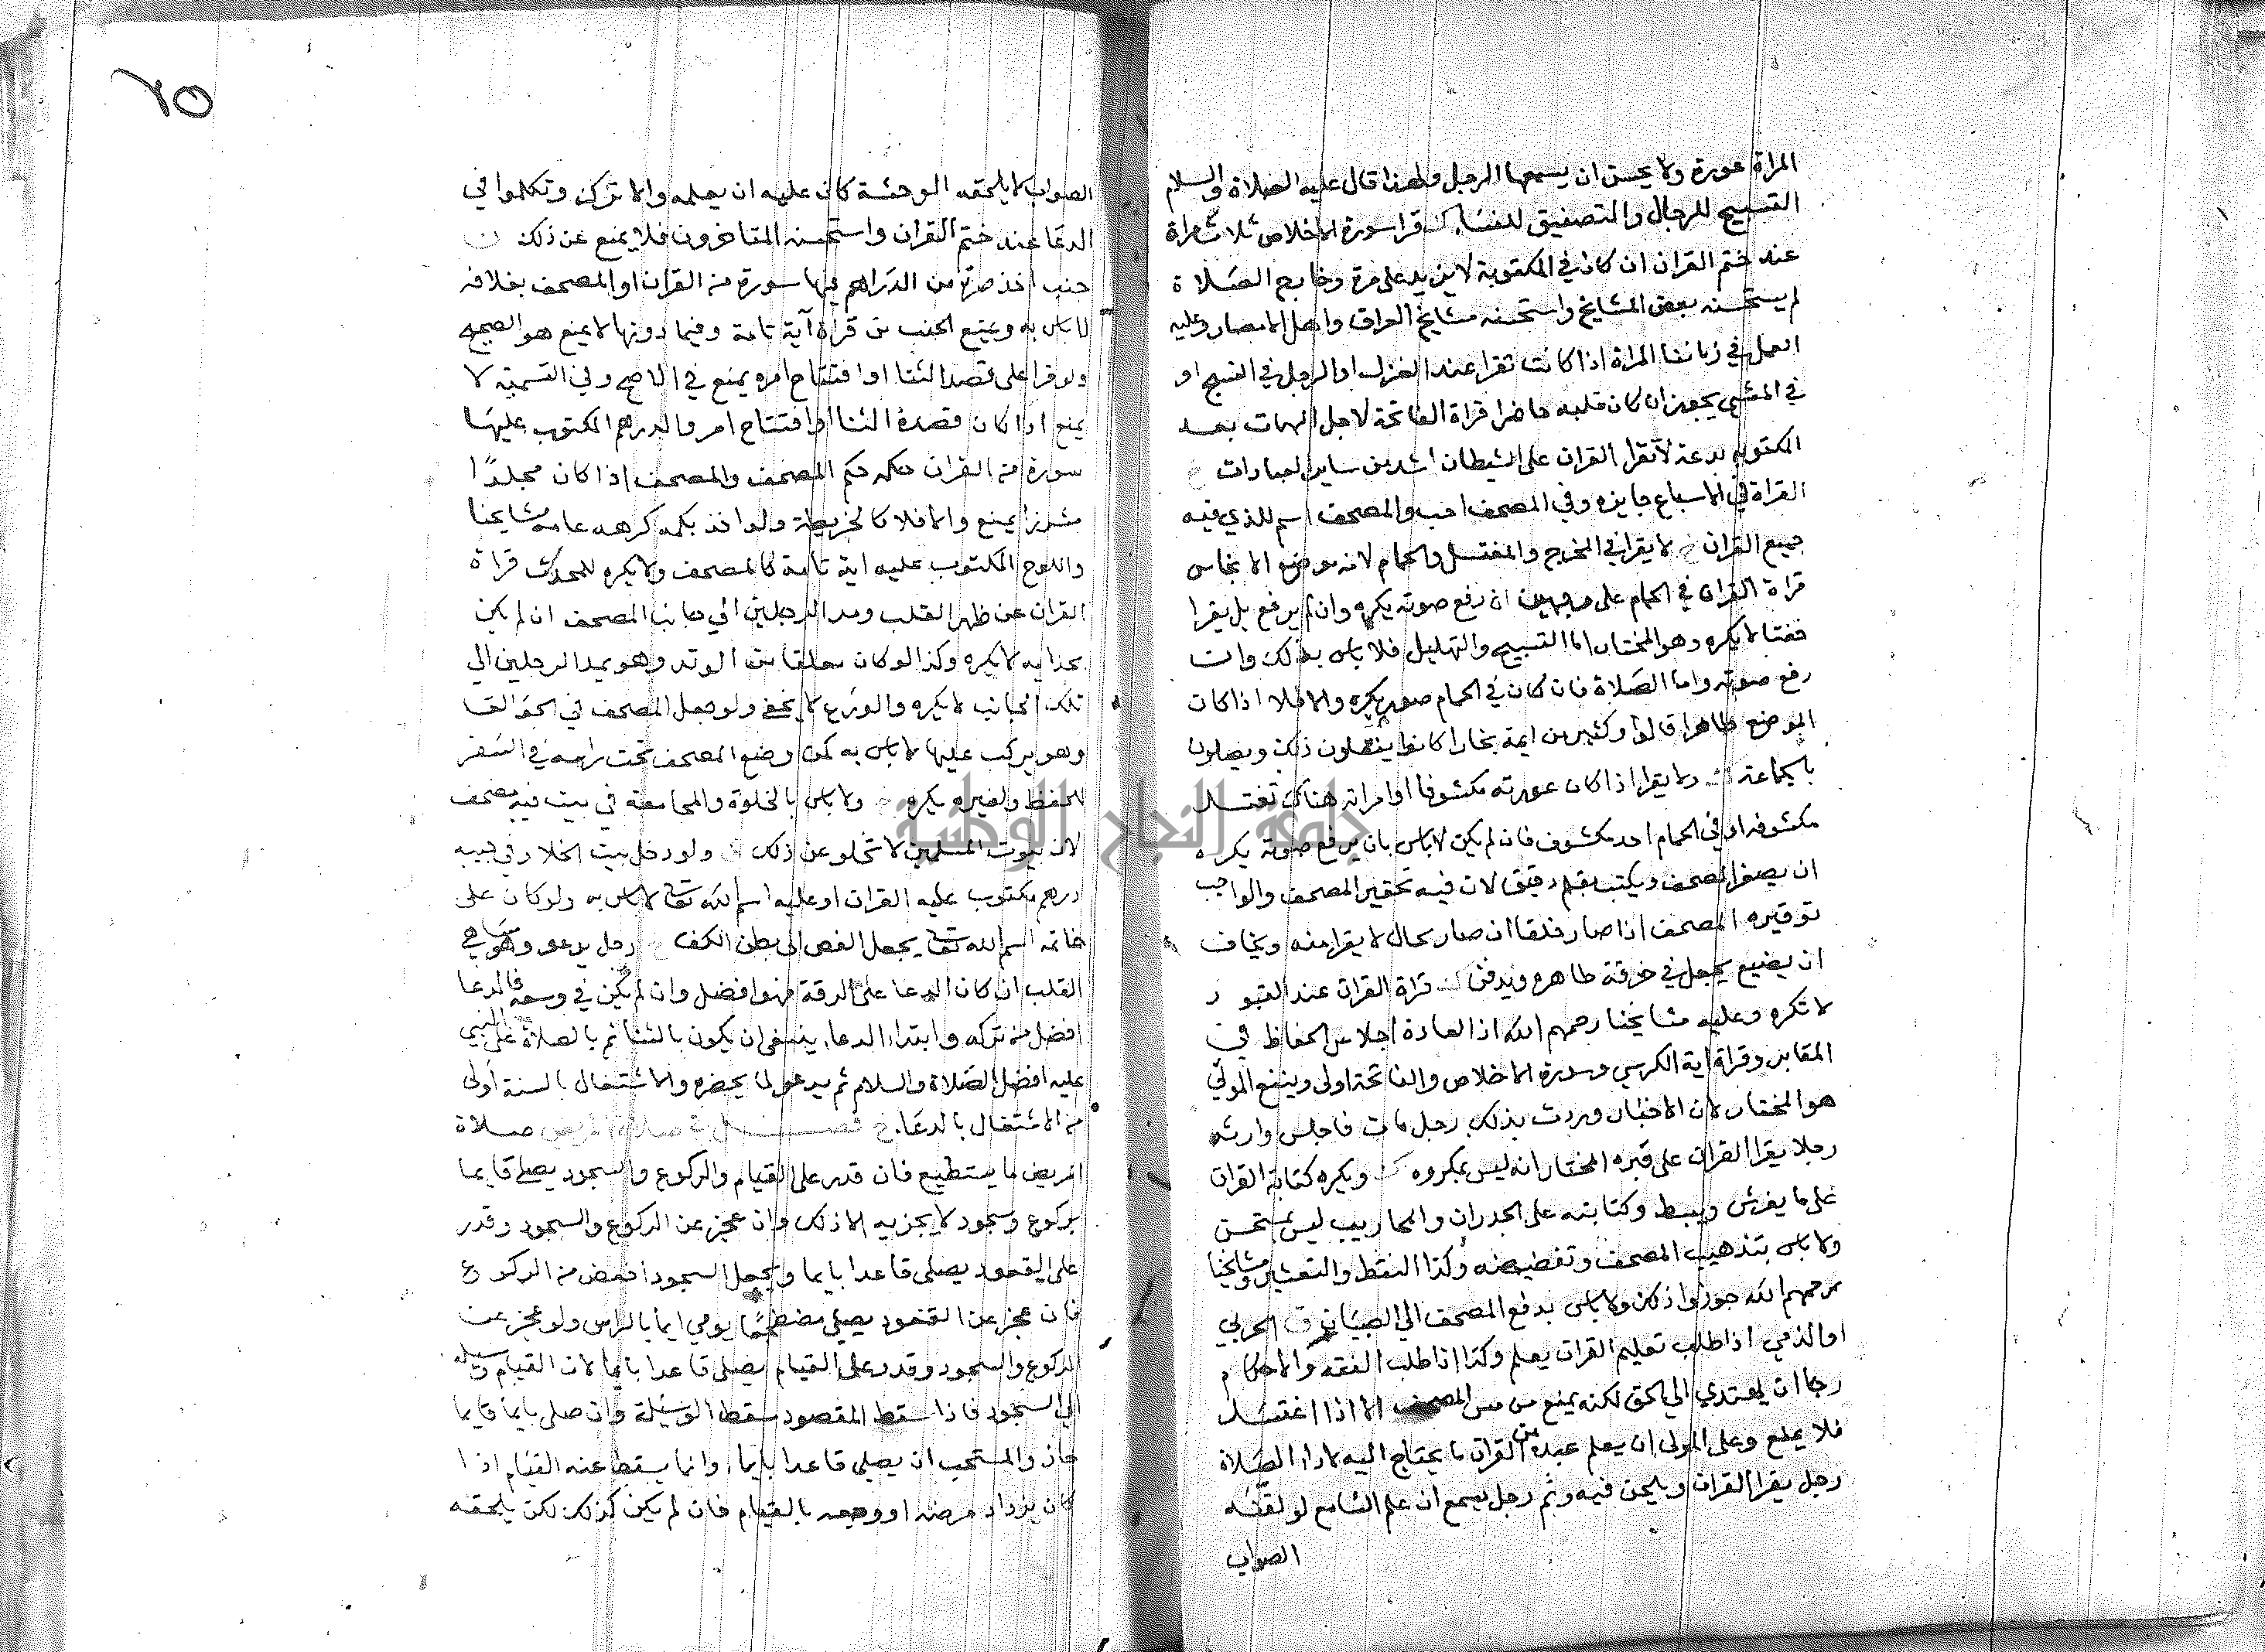 المراة عورة ولا يحسن ان يسمعها الرجل ولهذا قال عليه الصلاة والسلام
التسبيح للرجال والتصفيق للنسا قرا سورة الاخلاص ثلاث مراة
عند ختم القران ان كان في المكتوبة لا يزيد على مرة وخارج الصلاة
لم يستحسنه بعض المشايخ واستحسنه مشايخ العراق واهل الامصار وعليه
العمل في زماننا المراة اذا كانت تقرا عند الغزل او الرجل في النسج او
في المشي يجوز ان كان قلبه حاضرا قراة الفاتحة لاجل المهمات بعد
المكتوبه بدعة لا تقرا القران على الشيطان اشد من ساير العبادات
القراة في الاسباع جايزه وفي المصحف احب والمصحف اسم للذي فيه
جميع القران لا يقرا في المخرج والمغتسل والحمام لانه موضع الانجاس
قراة القران في الحمام على وجهين ان رفع صوته يكره وان لم يرفع بل يقرا
خفتا لا يكره وهو المختار اما التسبيح والتهليل فلا باس بذلك وان
رفع صوته واما الصلاة فان كان في الحمام صور يكره والا فلا اذا كان
الموضع طاهرا قالوا وكثير من ايمة بخارا كانوا يفعلون ذلك ويصلون
بالجماعة ولا يقرا اذا كان عورته مكشوفا او امراته هناك تغتسل
مكشوفه او في الحمام احد مكشوف فان لم يكن لا باس بان يرفع صوته يكره
ان يصغر المصحف ويكتب بقلم دقيق لان فيه تحقير المصحف والواجب
توقيره المصحف اذا صار خلقا ان صار بحال لا يقرا منه ويخاف
ان يضيع يجعل في خرقة طاهره ويدفن قراة القران عند القبور
لا تكره وعليه مشايخنا رحمهم الله اذ العادة اجلاس الحفاظ في
المقابر وقراة اية الكرسي وسورة الاخلاص والفاتحة اولى وينفع الموتي
هو المختار لان الاخبار وردت بذلك رجل مات فاجلس وارثه
رجلا يقرا القران على قبره المختار انه ليس بمكروه ويكره كتابة القران
على ما يفرش ويبسط وكتابته على الجدران والمحاريب ليس بمستحسن
ولا باس بتذهيب المصحف وتفضيضه وكذا النقط والتعشير ومشايخنا
رحمهم الله جوزوا ذلك ولا باس بدفع المصحف الي الصبيان الحربي
او الذمي اذا طلب تعليم القران يعلم وكذا اذا طلب الفقه والاحكام
رجا ان يهتدي الي الحق لكنه يمنع من مس المصحف الا اذا اغتسل
فلا يمنع وعلى المولى ان يعلم عبده من القران ما يحتاج اليه لادا الصلاة
رجل يقرا القران ويلحن فيه وثم رجل يسمع ان علم السامع لو لقنه
الصواب
٢٥
الصواب لا يلحقه الوحشة كان عليه ان يعلمه والا تركن وتكلموا في
الدعا عند ختم القران واستحسنه المتاخرون فلا يمنع عن ذلك
جنب اخذ صرة من الدراهم فيها سورة من القران او المصحف بغلافه
لا باس به ويمنع الجنب من قراة آية تامة وفيما دونها لا يمنع هو الصحيح
ولو قرا على قصد الثنا او افتتاح امره يمنع في الاصح وفي التسمية لا
يمنع اذا كان قصده الثنا او افتتاح امر والدرهم المكتوب عليها
سورة من القران حكمه حكم المصحف والمصحف اذا كان مجلدا
مشرزا يمنع والا فلا كالخريطة ولو اخذ بكمه كرهه عامة مشايخنا
واللوح المكتوب عليه اية تامة كالمصحف ولا يكره للمحدث قراة
القران عن ظهر القلب ومد الرجلين الي جانب المصحف ان لم يكن
بحذايه لا يكره وكذا لو كان معلقا من الوتد وهو يمد الرجلين الي
تلك الجانب لا يكره والورع لا يخفي ولو جعل المصحف في الجوالقا
وهو يركب عليها لا باس به كمن وضع المصحف تحت راسه في السفر
للحفظ ولغيره يكره ولا باس بالخلوة والمجامعة في بيت فيه مصحف
لان بيوت المسلمين لا تخلو عن ذلك ولو دخل بيت الخلا وفي جيبه
درهم مكتوب عليه القران او عليه اسم الله تعالى لا باس به ولو كان على
خاتمه اسم الله تعالى يجعل الفص الى بطن الكف رجل يدعو وهو ساهي
القلب ان كان الدعا على الرقة فهو افضل وان لم يكن في وسعه فالدعا
افضل من تركه وابتداء الدعاء ينبغي ان يكون بالثنا ثم بالصلاة على النبي
عليه افضل الصلاة والسلام ثم يدعو لما يحضره والاشتغال بالسنة اولى
من الاشتغال بالدعا. فصل في صلاة المريض صلاة
المريض ما يستطيع فان قدر على القيام والركوع والسجود يصلي قايما
بركوع وسجود لا يجزيه الا ذلك وان عجز عن الركوع والسجود وقدر
على القعود يصلي قاعدا بايما ويجعل السجود اخفض من الركوع
فان عجز عن القعود يصلي مضطجعا يومي ايما بالراس ولو عجز عن
الركوع والسجود وقدر على القيام يصلي قاعدا بايما لان القيام وسيلة
الي السجود فاذا سقط المقصود سقط الوسيلة وان صلى بايما قايما
جاز والمستحب ان يصلي قاعدا بايماء وانما يسقط عنه القيام اذا
كان يزداد مرضه او وجعه بالقيام فان لم يكن كذلك لكن يلحقه
جامعة النجاح الوطنية